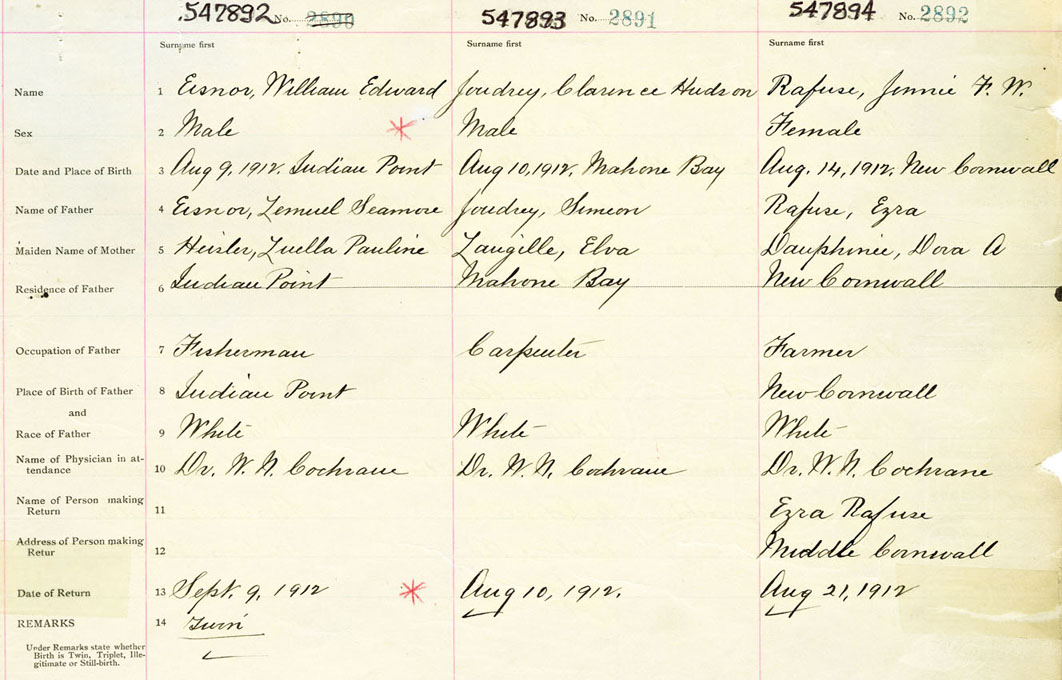 547892 No. 2890 547893 No. 2891 547894 No. 2892
Surname first Surname first Surname first
Name 1 Eisnor, William Edward Joudrey, Clarence Hudson Rafuse, Jennie F. W.
Sex 2 Male Male Female
Date and Place of Birth 3 Aug 9, 1912. Indian Point Aug 10, 1912. Mahone Bay Aug. 14, 1912. New Cornwall
Name of Father 4 Eisnor, Lemuel Seamore Joudrey, Simeon Rafuse, Ezra
Maiden Name of Mother 5 Heisler, Luella Pauline Langille, Elva Dauphinee, Dora A
Residence of Father 6 Indian Point Mahone Bay New Cornwall
Occupation of Father 7 Fisherman Carpenter Farmer
Place of Birth of Father 8 Indian Point New Cornwall
and
Race of Father 9 White White White
Name of Physician in at-
tendance 10 Dr. W. N. Cochrane Dr. W. N. Cochrane Dr. W. N. Cochrane
Name of Person making
Return 11 Ezra Rafuse
Address of Person making
Retur 12 Middle Cornwall
Date of Return 13 Sept. 9, 1912 Aug 10, 1912. Aug 21, 1912
REMARKS 14 Twin
Under Remarks state whether
Birth is Twin, Triplet, Ille-
gitimate or Still-birth.